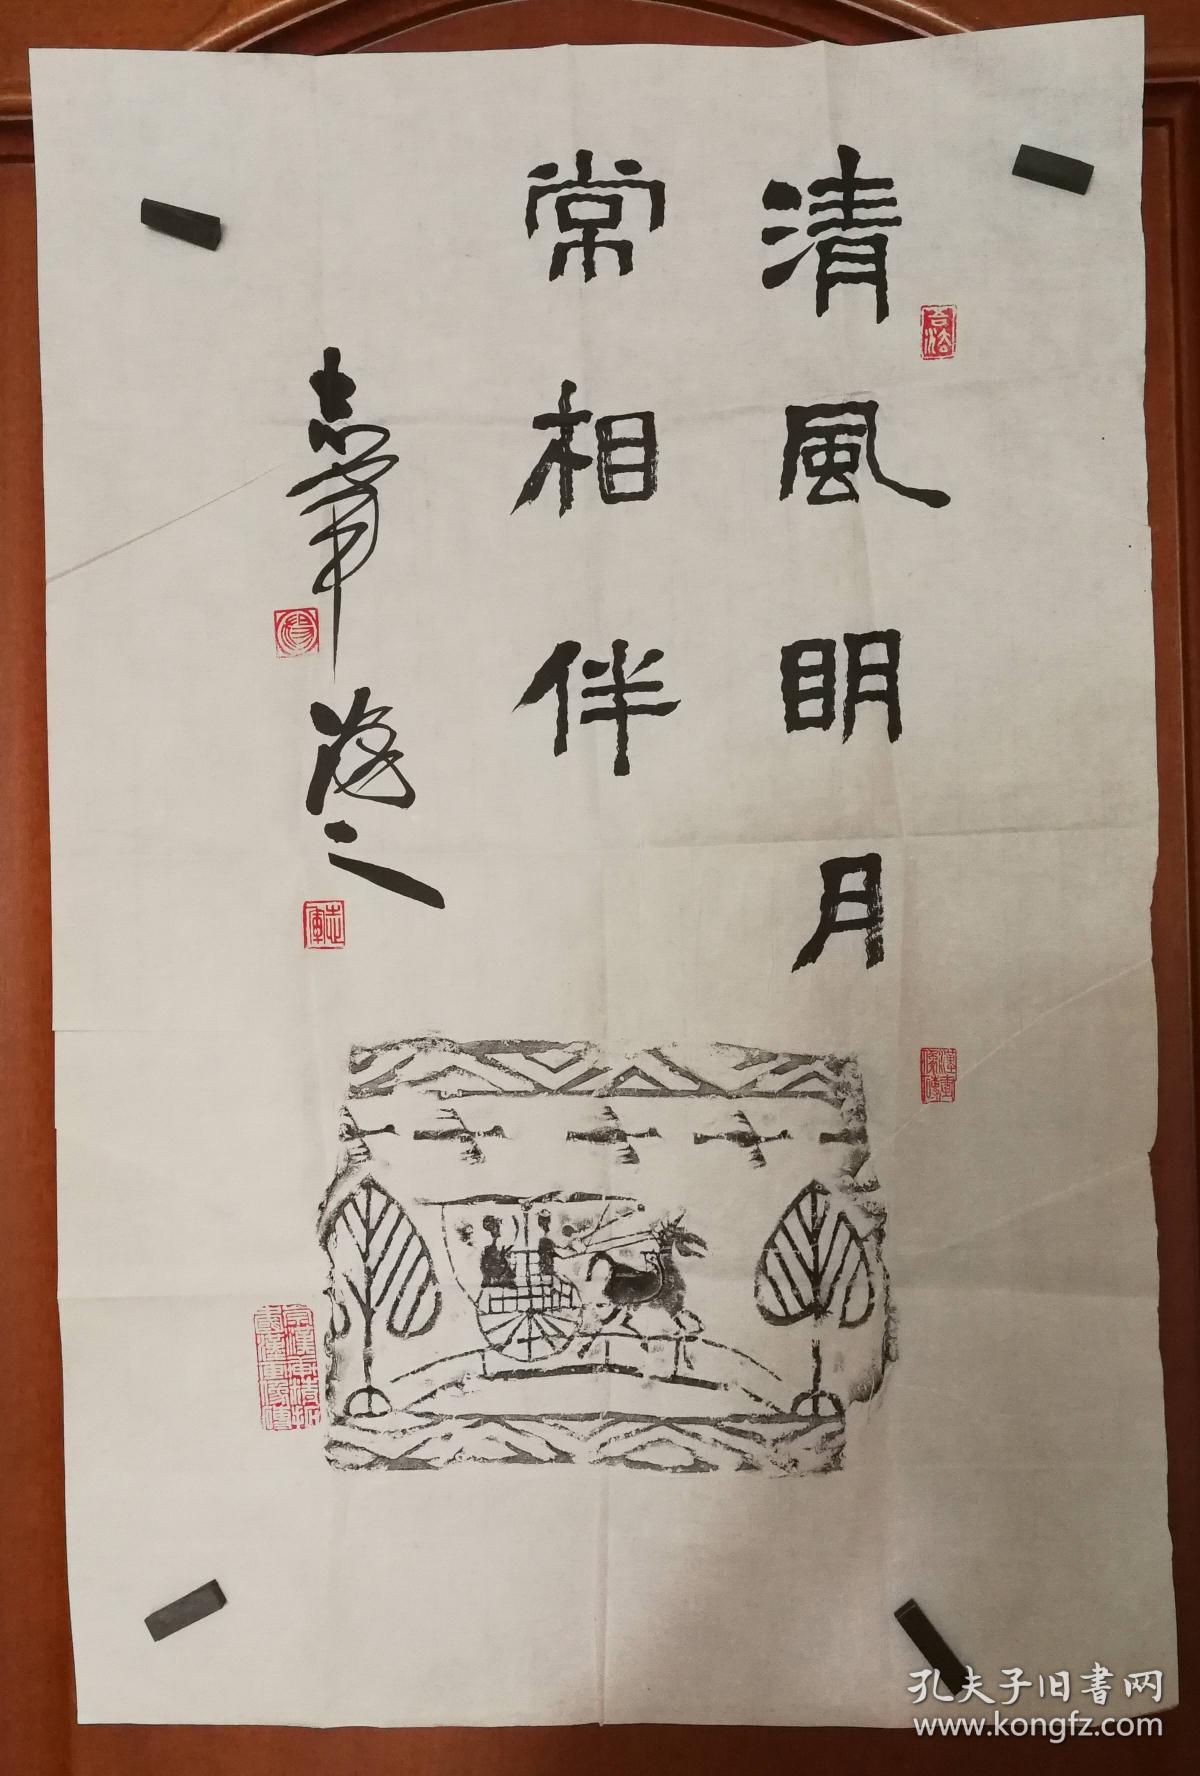 清風明月
常相伴
志軍
之
志軍
漢畫
孔夫子旧書网
www.kongfz.com